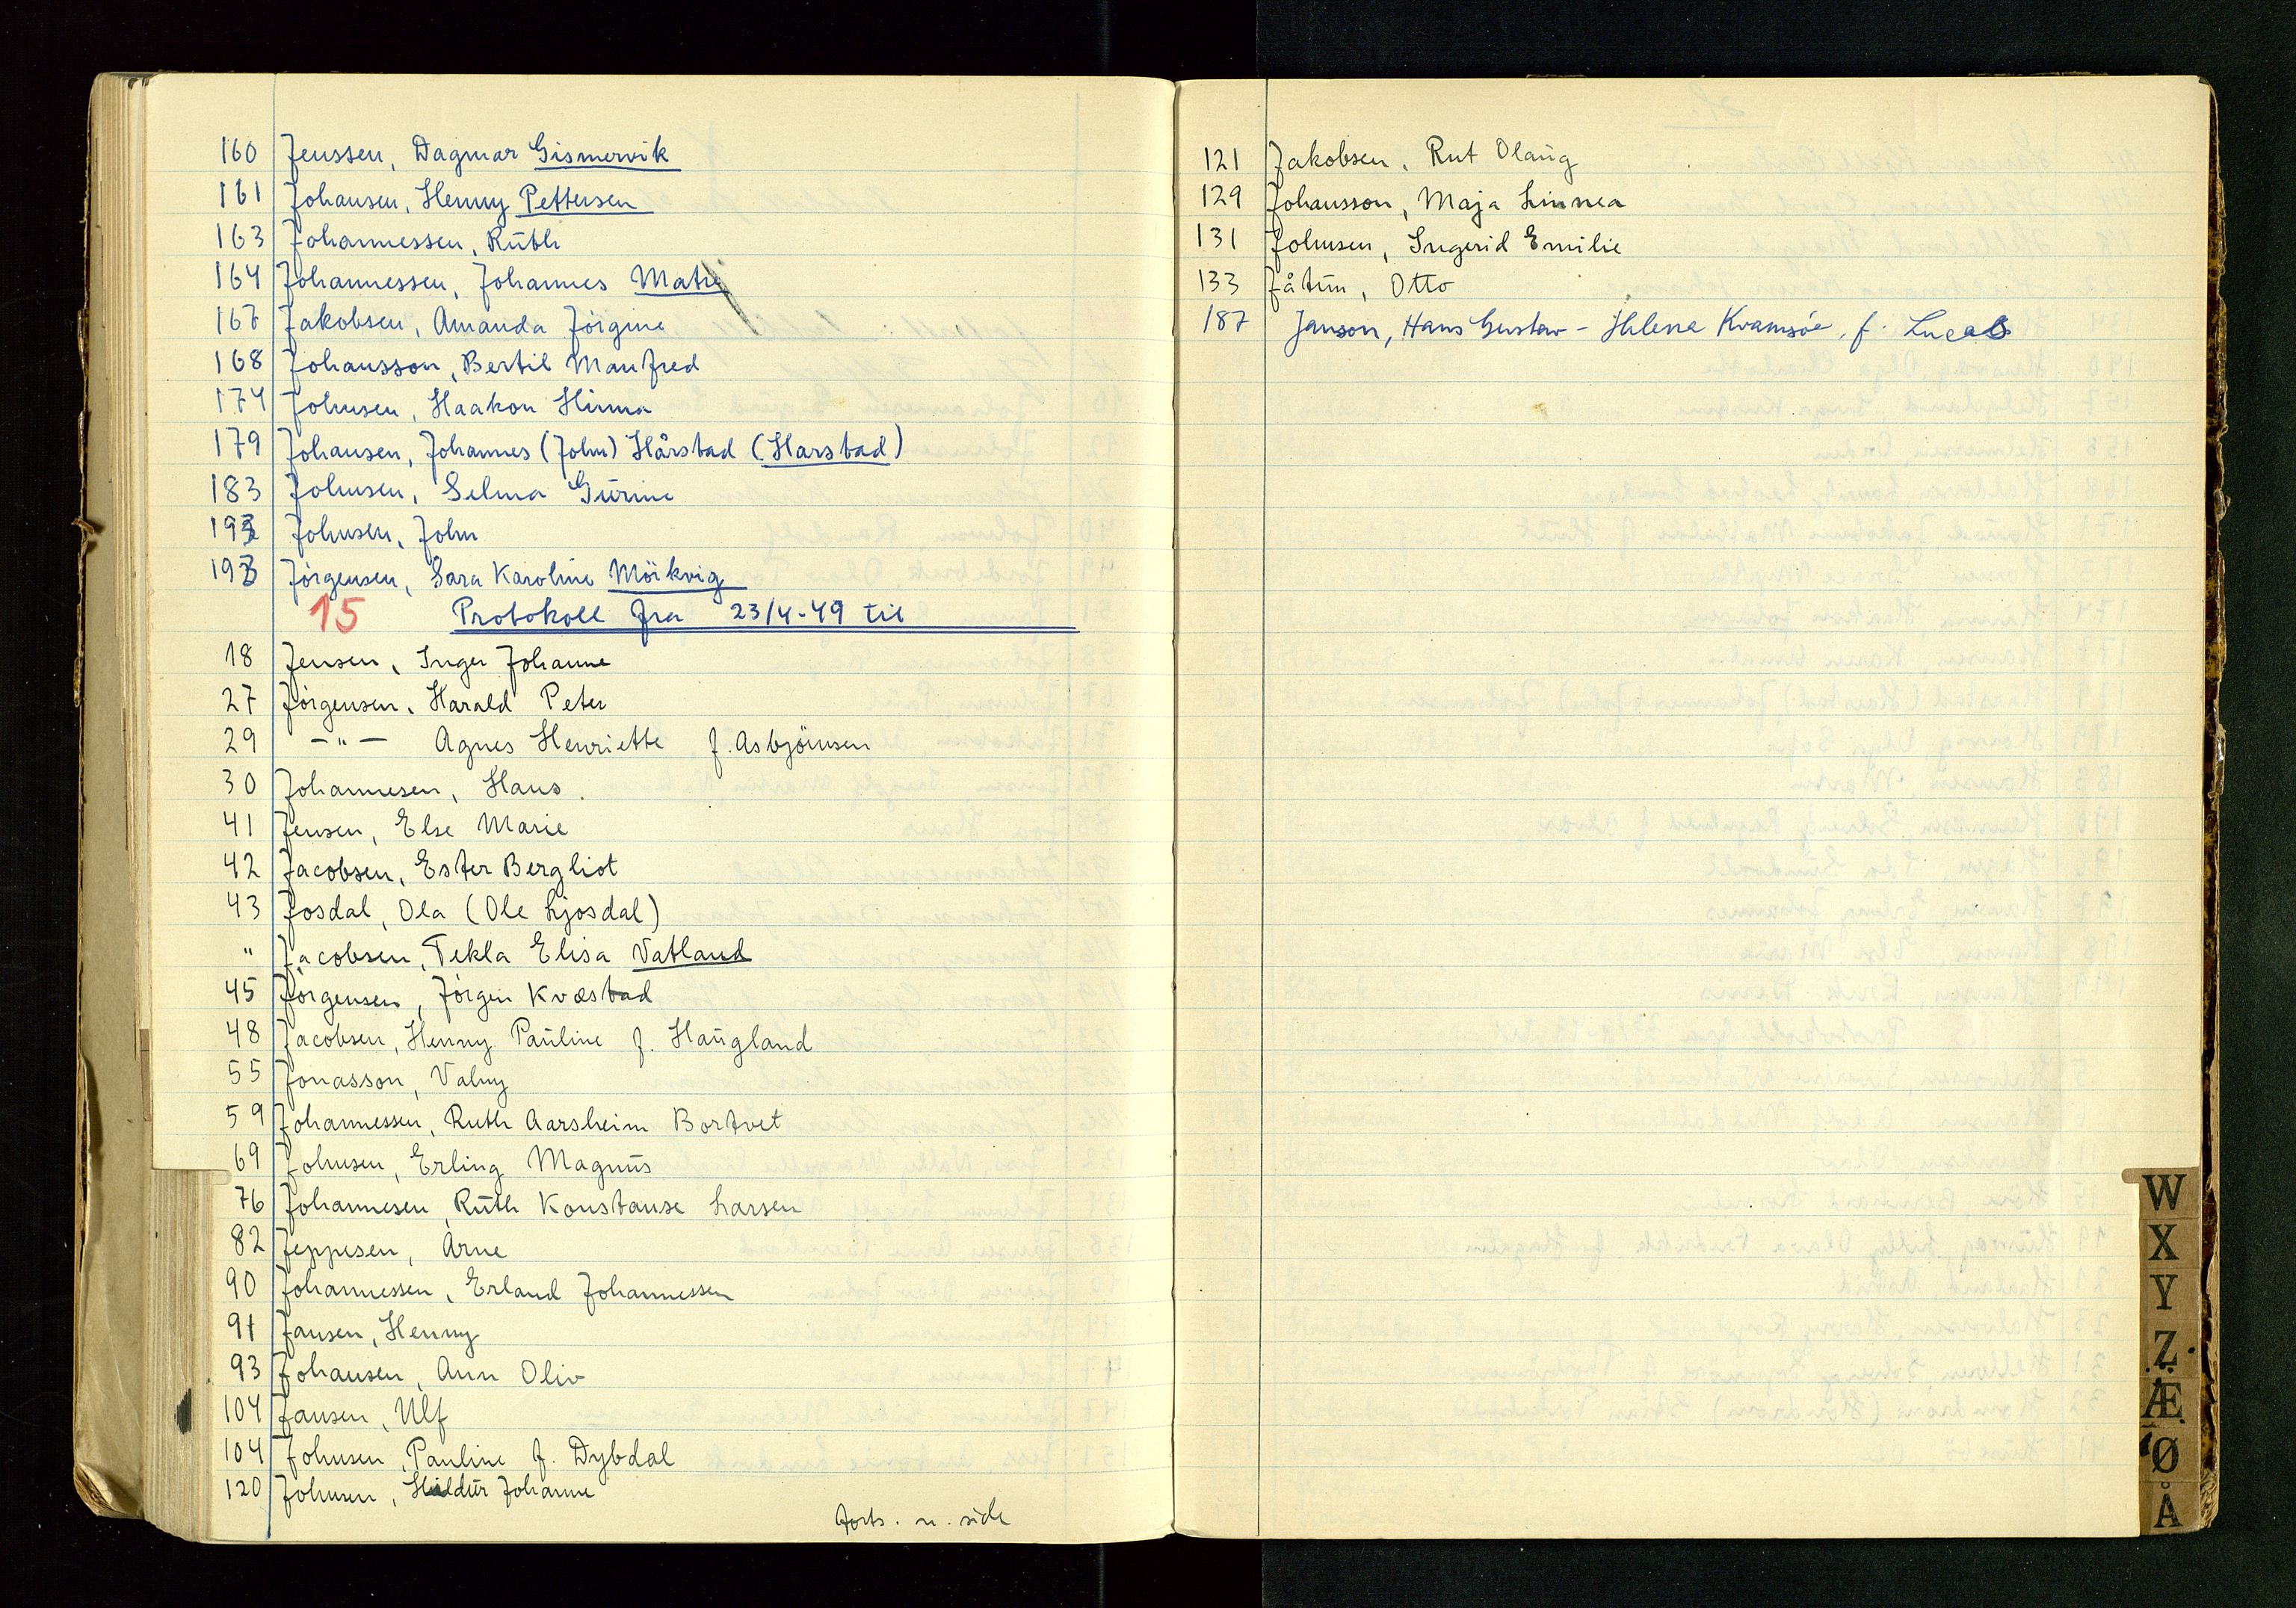 160 Jenssen, Dagmar Gismervik
161 Johansen, Henny Pettersen
163 Johannessen, Ruth
164 Johannessen, Johannes Matre
167 Jakobsen, Amanda Jörgine
168 Johansson, Bertil Manfred
174 Johnsen, Haakon Hinna
179 Johansen, Johannes (John) Hårstad (Harstad)
183 Johnsen, Selma Gurine
Johnsen, John
Jörgensen, Sara Karoline Mörkvig
15 Protokoll fra 23/4-49 til
18 Jensen, Inger Johanne
27 Jörgensen, Harald Peter
29 -"- Agnes Henriette f. Asbjörnsen
30 Johannesen, Hans
41 Jensen, Else Marie
42 Jacobsen, Ester Bergliot
43 Josdal, Ola (Ole Ljosdal)
" Jacobsen, Tekla Elisa Vatland
45 Jörgensen, Jörgen Kvæstad
48 Jacobsen, Henny Pauline f. Haugland
55 Jonasson, Valny
59 Johannessen, Ruth Aarsheim Bortvet
69 Johnsen, Erling Magnus
76 Johannesen, Ruth Konstanse Larsen
82 Jeppesen, Arne
90 Johannessen, Erland Johannessen
91 Jansen, Henny
93 Johansen, Ann Oliv
104 Jansen, Ulf
104 Johnsen, Pauline f. Dybdal
120 Johnsen, Hildur Johanne
forts. n. side
121 Jakobsen, Rut Olaug
129 Johansson, Maja Linnea
131 Johnsen, Ingerid Emilie
133 Jåtun, Otto
187 Janson, Hans Gustav - Helena Kvamsöe, f. Lucas
W
X
Y
Z
Æ
Ø
Å